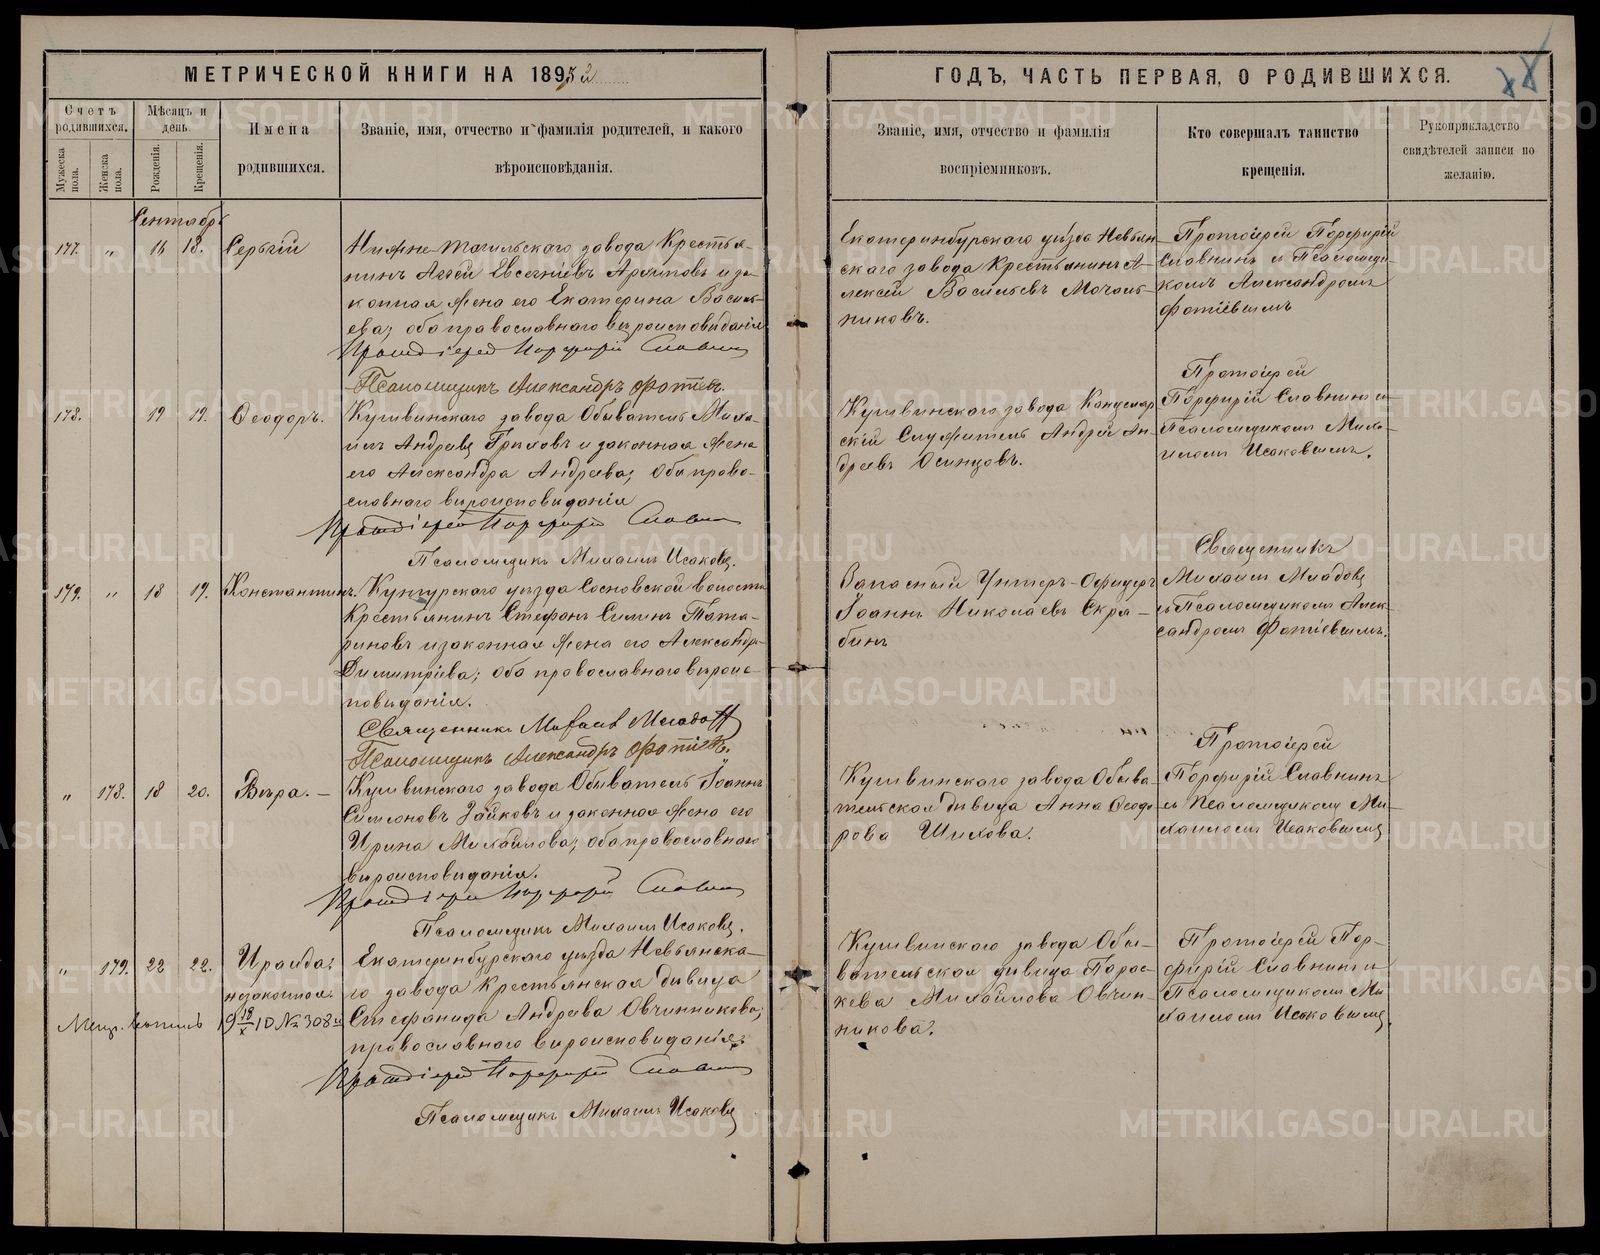 МЕТРИЧЕСКОЙ КНИГИ НА 1892
ГОДЪ, ЧАСТЬ ПЕРВАЯ, О РОДИВШИХСЯ.
Счетъ родившихся.
Мужеска пола.
Женска пола.
Мѣсяцъ и день.
Рожденія.
Крещенія.
Имена
родившихся.
Званіе, имя, отчество и фамилія родителей, и какого
вѣроисповѣданія.
Званіе, имя, отчество и фамилія
воспріемниковъ.
Кто совершалъ таинство
крещенія.
Рукоприкладство
свидѣтелей записи по
желанію.
Сентябрь
177. " 18. Сергѣй
Нижне-Тагильскаго завода Кресть-
янинъ Евсегніевъ и за-
конная жена его Екатерина Василь-
ева; оба православнаго вѣроисповѣданія
Протоіерей Порфирій Славнинъ
Псаломщикъ Александръ Фотіевъ.
Екатеринбургскаго уѣзда Невьян-
скаго завода Крестьянинъ А-
лексѣй Васильевъ Мочаль-
никовъ.
Протоіерей Порфирій
Славнинъ и Псаломщи-
комъ Александромъ
Фотіевымъ
178. 19 19. Ѳеодоръ.
Кушвинскаго завода Обыватель Миха-
илъ Андреевъ и законная жена
его Александра Андреева; Оба право-
славнаго вѣроисповѣданія
Протоіерей Порфирій Славнинъ
Псаломщикъ Михаилъ Исаковъ.
Кушвинскаго завода Канцеляр-
скій Служитель Андрей Ан-
дреевъ Осинцовъ.
Протоіерей
Порфирій Славнинъ и
Псаломщикомъ Миха-
иломъ Исаковымъ.
179. " 18 19. Константинъ.
Кунгурскаго уѣзда Сосновской волости
Крестьянинъ Стефанъ Силинъ Тата-
риновъ и законная жена его Александра
Димитріева; оба православнаго вѣроис-
повѣданія.
Священникъ Михаилъ Младовъ
Псаломщикъ Александръ Фотіевъ.
Запасный Унтеръ-Офицеръ
Іоаннъ Николаевъ Скря-
бинъ
Священникъ
Михаилъ Младовъ
и Псаломщикомъ Алек-
сандромъ Фотіевымъ.
" 178. 18 20. Вѣра. –
Кушвинскаго завода Обыватель Іоаннъ
Симоновъ Зайковъ и законная жена его
Ирина Михайлова; оба православнаго
вѣроисповѣданія.
Протоіерей Порфирій Славнинъ
Псаломщикъ Михаилъ Исаковъ.
Кушвинскаго завода Обыва-
тельская дѣвица Анна Ѳеодо-
рова Шихова.
Протоіерей
Порфирій Славнинъ
и Псаломщикомъ Ми-
хаиломъ Исаковымъ
" 179. 22 22. Ираида:
незаконная.
Метр. выпись 19 18/X 10 № 308
Екатеринбургскаго уѣзда Невьянска-
го завода Крестьянская дѣвица
Стефанида Андреева Овчинникова;
православнаго вѣроисповѣданія.
Протоіерей Порфирій Славнинъ
Псаломщикъ Михаилъ Исаковъ
Кушвинскаго завода Обы-
вательская дѣвица Парас-
кева Михайлова Овчин-
никова.
Протоіерей Пор-
фирій Славнинъ и
Псаломщикомъ Ми-
хаиломъ Исаковымъ.
METRIKI.GASO-URAL.RU